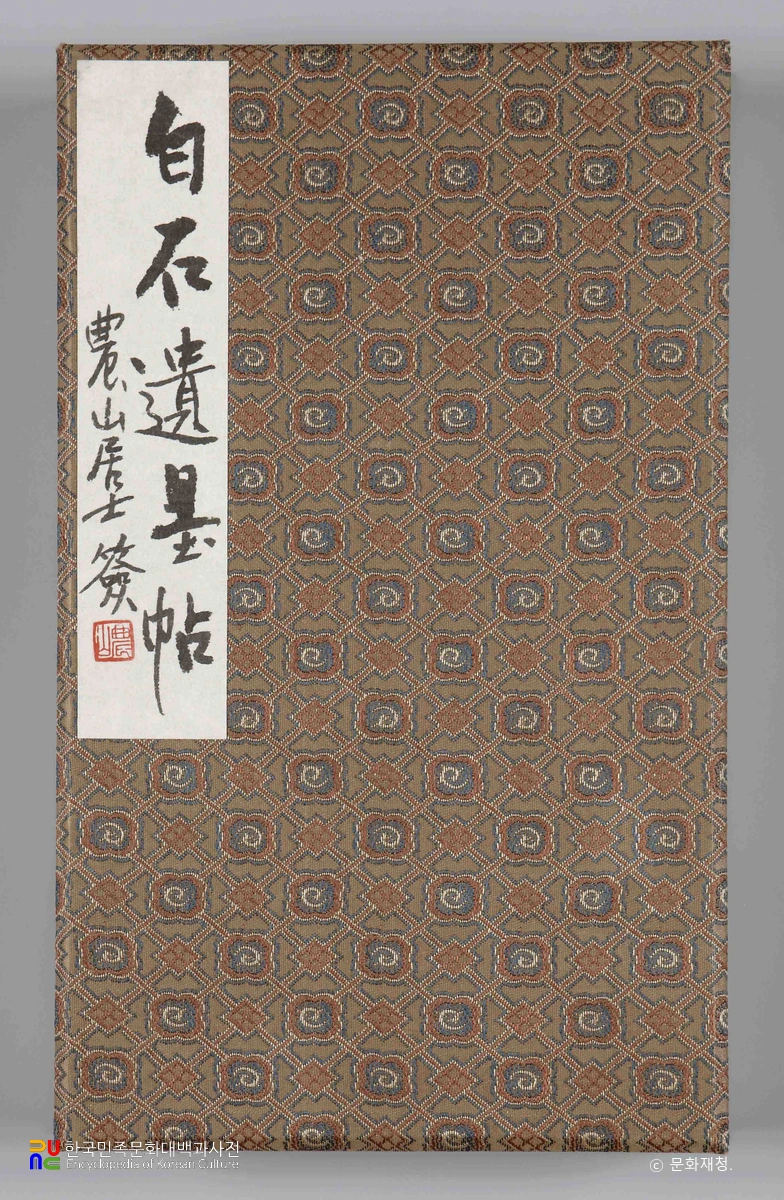 白石遺墨帖
農山居士簽
農山
한국민족문화대백과사전
Encyclopedia of Korean Culture
© 문화재청.